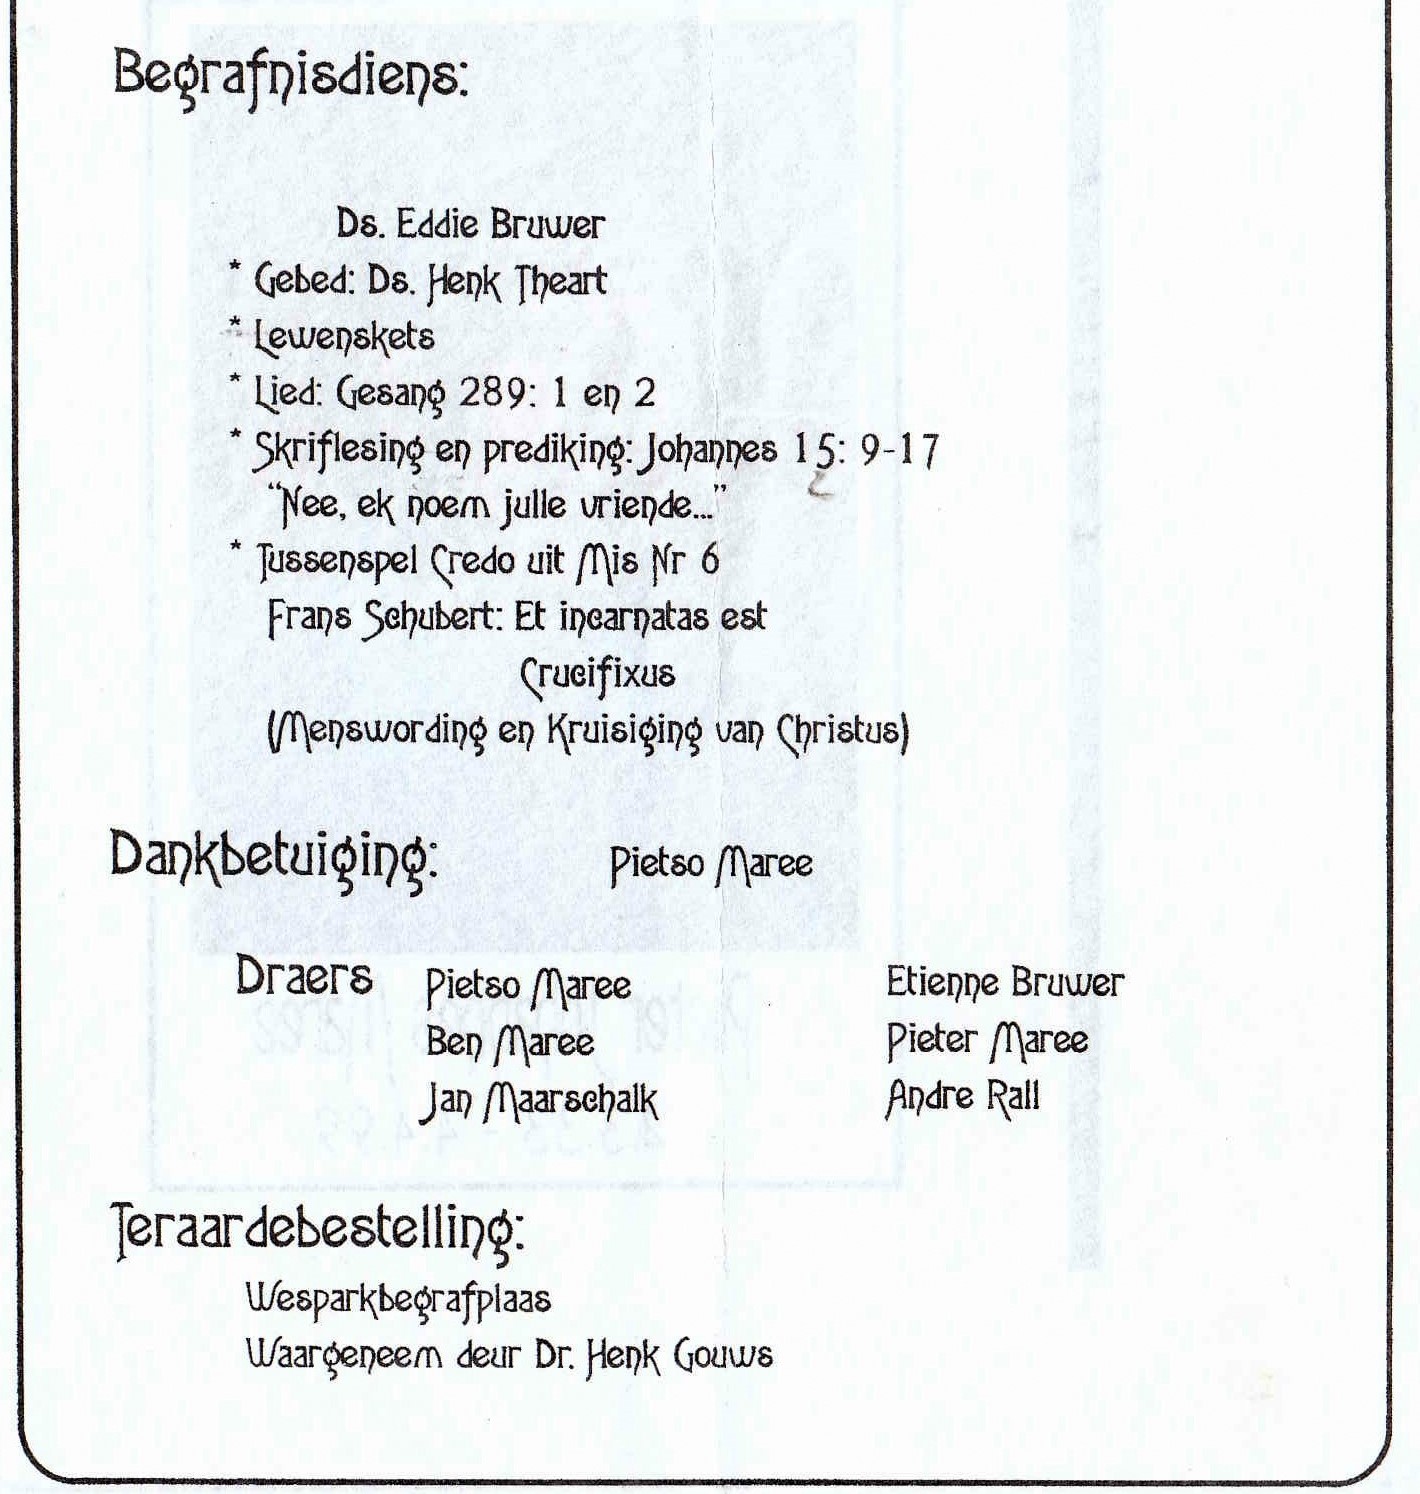 Begrafnisdiens:
Ds. Eddie Bruwer
* Gebed: Ds. Henk Theart
* Lewenskets
* Lied: Gesang 289: 1 en 2
* Skriflesing en prediking: Johannes 15: 9-17
"Nee, ek noem julle vriende..."
* Tussenspel Credo uit Mis Nr 6
Frans Schubert: Et incarnatas est
Crucifixus
(Menswording en Kruisiging van Christus)
Dankbetuiging: Pietso Maree
Draers Pietso Maree Etienne Bruwer
Ben Maree Pieter Maree
Jan Maarschalk Andre Rall
Teraardebestelling:
Wesparkbegrafplaas
Waargeneem deur Dr. Henk Gouws